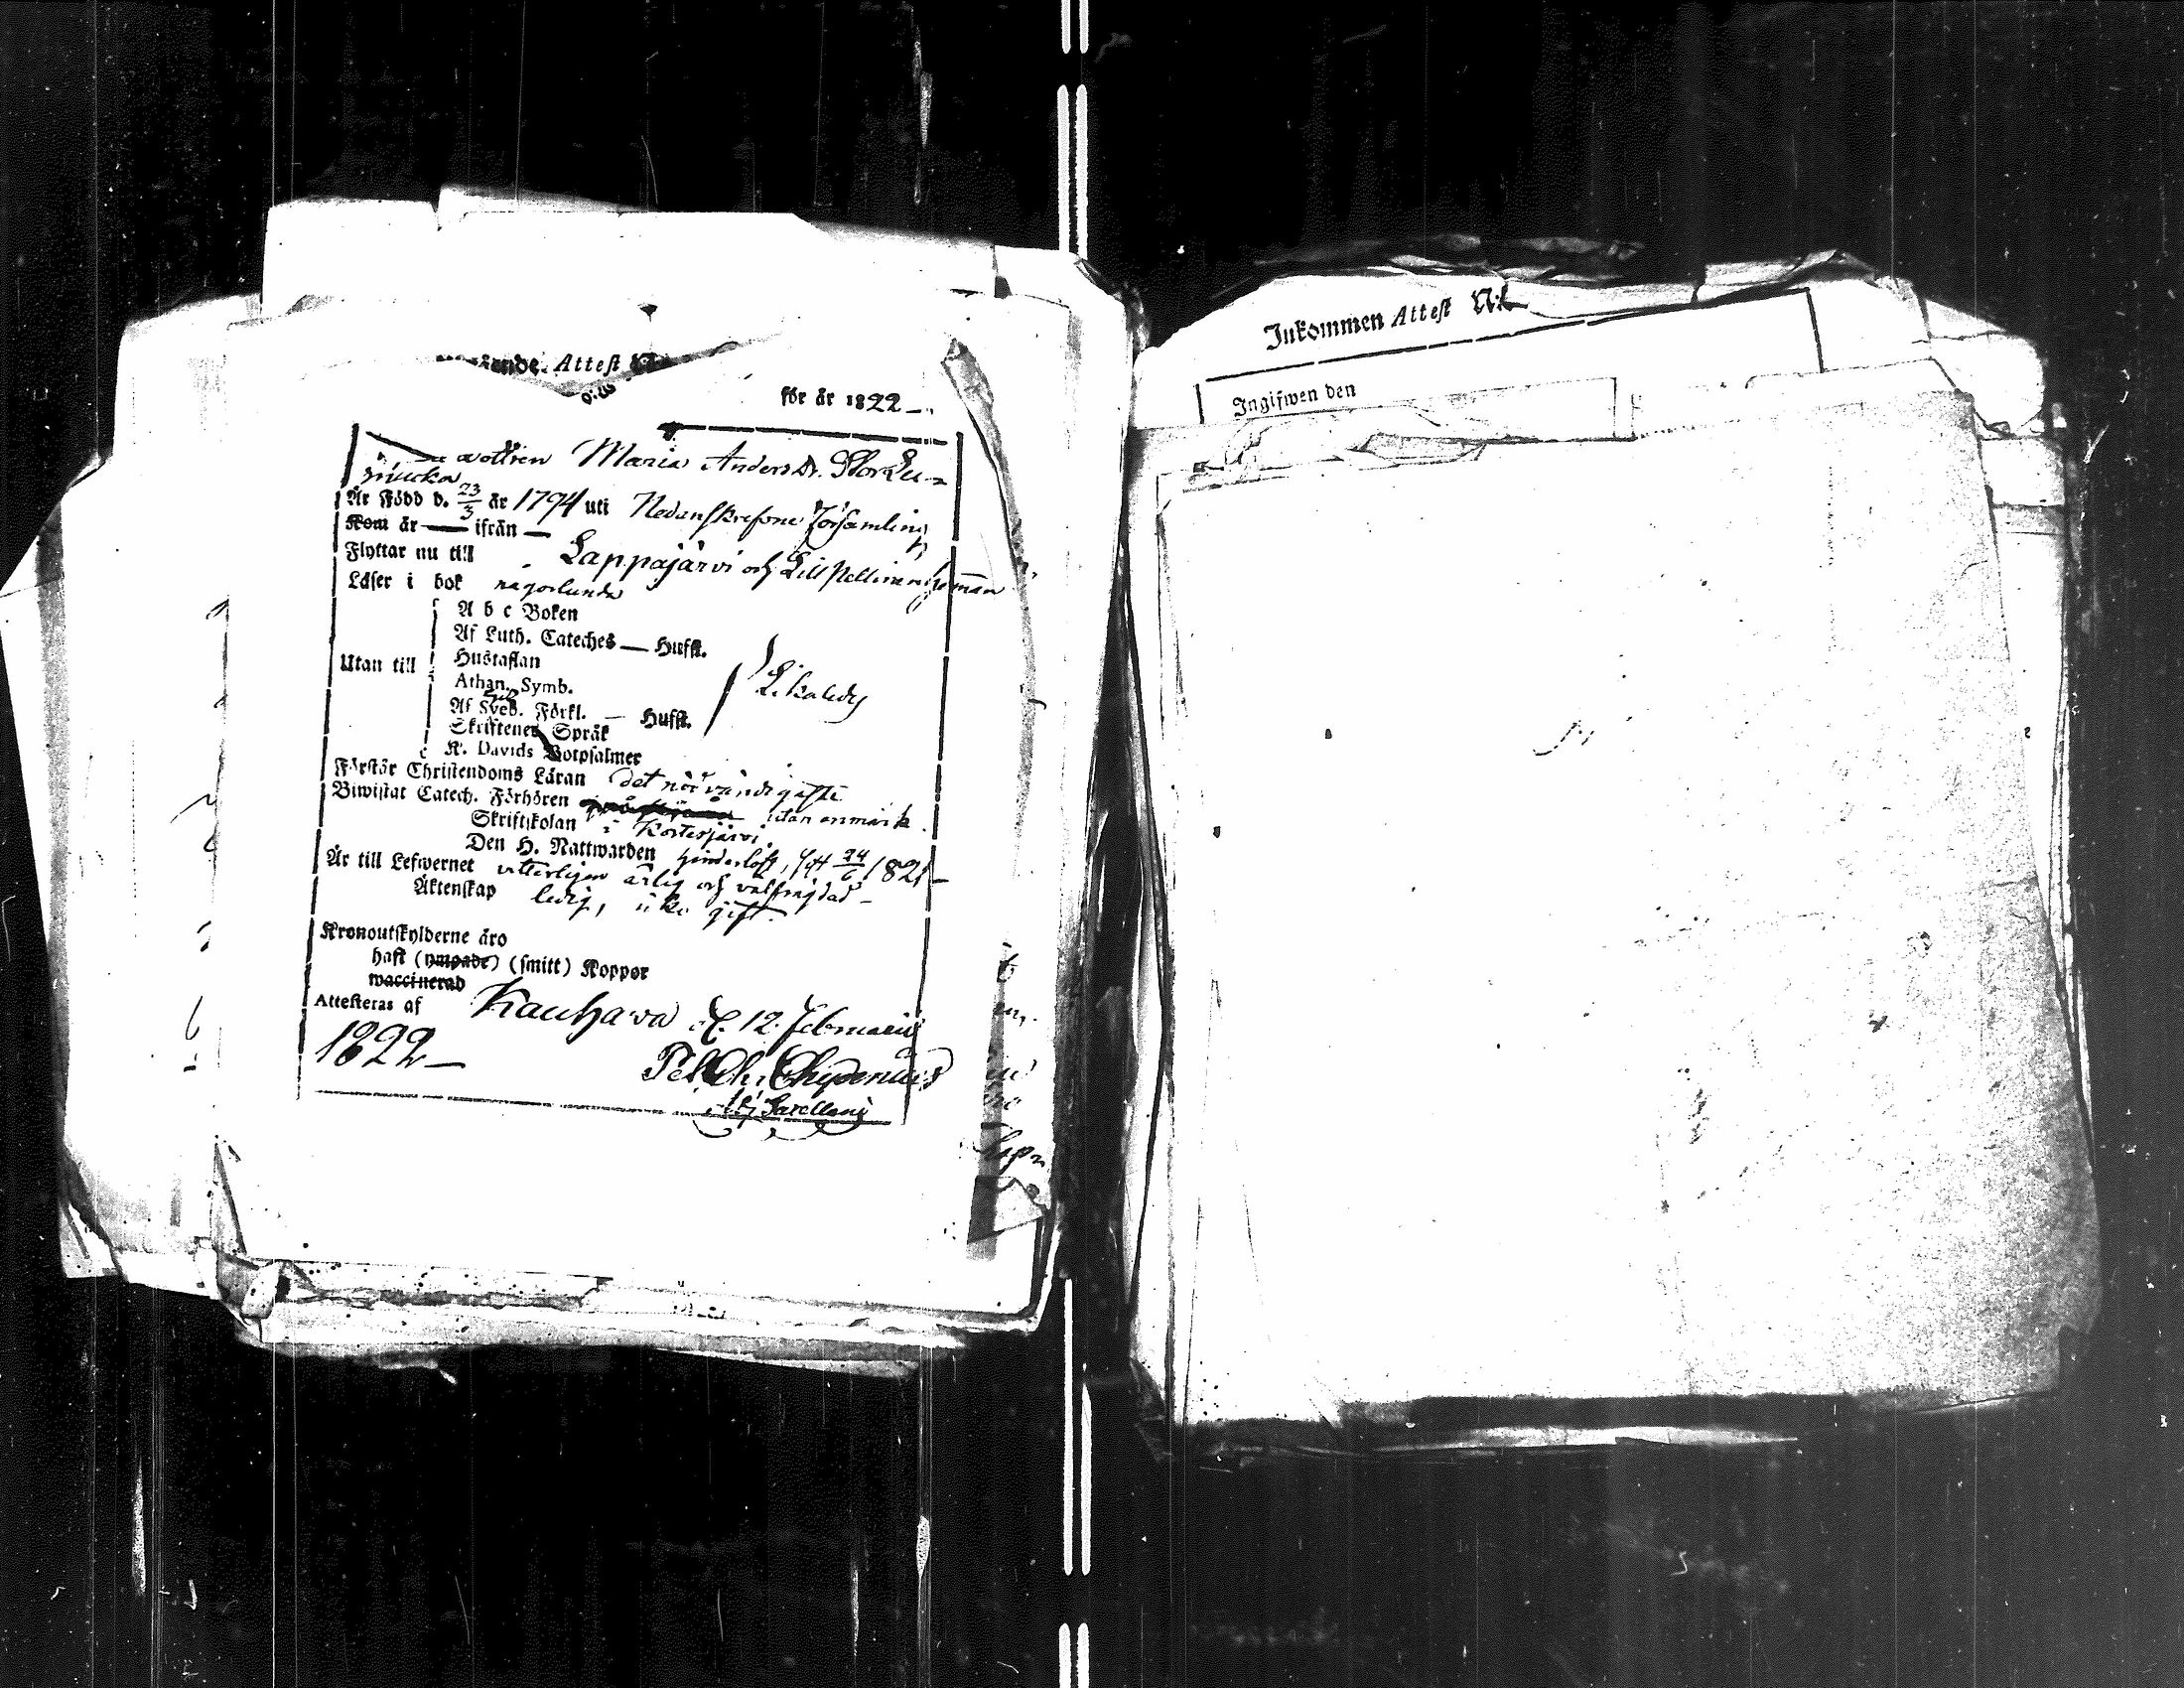 Attest
för år 1822
dottren Maria Anders Dr. Storlu-
mucka
Är Född d. 23/3 år 1794 uti Nedanskrefne Församling
Kom år — ifrån —
Flyttar nu till Lappajärvi och Lill Pellinen hemman
Läser i bok någorlunda
A b c Boken
Af Luth. Cateches — Hufst.
Utan till Hustaflan
Athan. Symb.
Af Sveb. Förkl. — Hufst.
Likaledes
Skriftenes Språk
K. Davids Botpsalmer
Förstår Christendoms Läran det nödvändigaste
Biwistat Catech. Förhören utan anmärk.
Skriftskolan i Kortesjärvi
Den H. Nattwarden hinderlöst, sist 24/6 1821 —
Är till Lefwernet vitterligen ärlig och välfrejdad —
Äktenskap ledig, icke gift.
Kronoutskylderne äro
haft (ympade) (smitt) Koppor
waccinerad
Attesteras af Kauhava d. 12. Februarii
1822 —
Pehr Chr. Chydenius
Inkommen Attest N:o
Ingifwen den